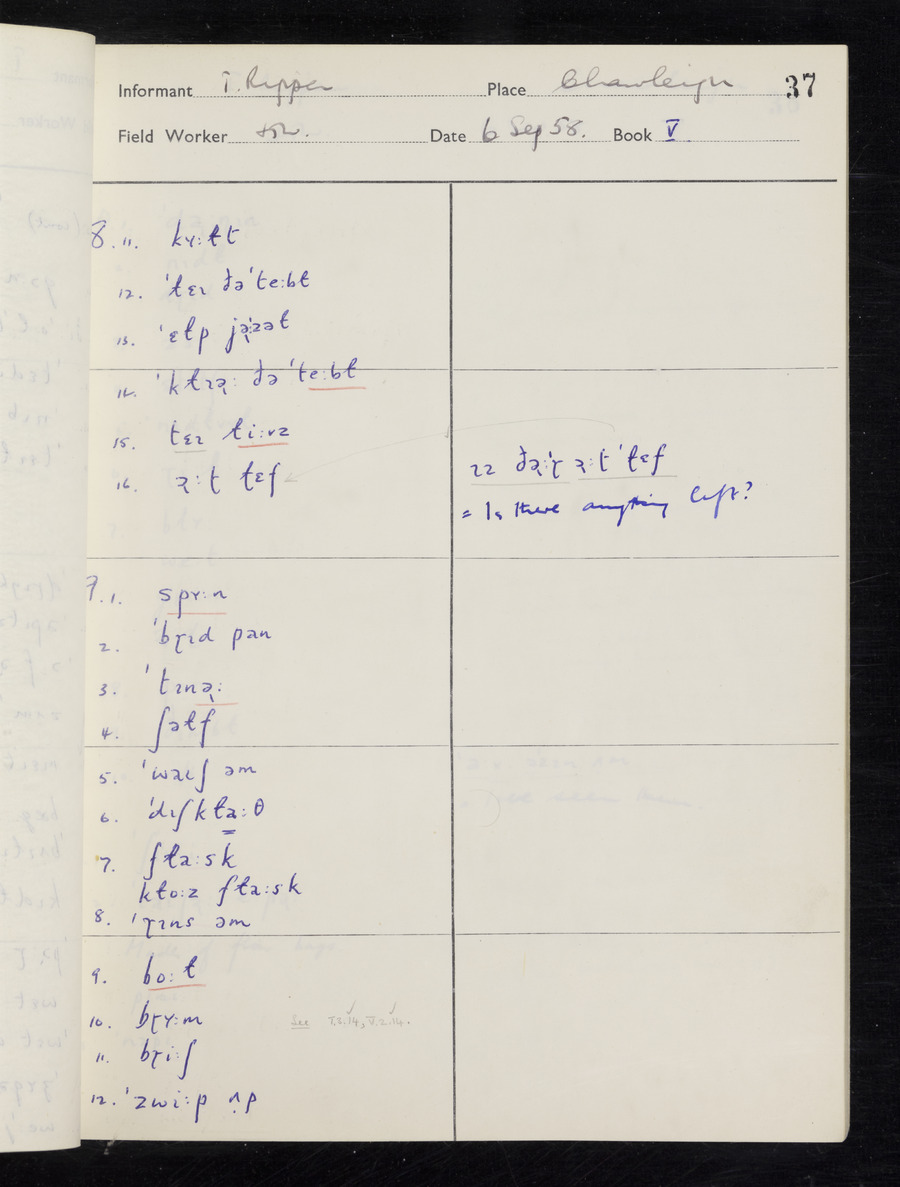 Informant T. Ripper Place Chawleigh 37
Field Worker Date 6 Sep 58. Book V
8. 11. kʏ:ɫt
12. 'ɫɛɪ ðə 'te:bɫ
13. 'ɛɫp jəzəɫ
14. 'kɫɪə̢: ðə 'te:bɫ
15. tɛɪ ɫi:vz
16. ɔ:t ɫɛf
ɪz ðə:ɽ ɔ:t 'ɫɛf
= Is there anything left?
9. 1. spʏ:n
2. 'bɽɪd pan
3. 'tɪnə̢:
4. ʃəɫf
5. 'waɪʃ əm
6. 'dɪʃkɫa:θ
7. fɫa:sk
kɫo:z fɫa:sk
8. 'ɽɪns əm
9. bo:ɫ
10. bɽʏ:m See I.3.14, V.2.14.
11. bɽi:ʃ
12. 'zwi:p ʌp